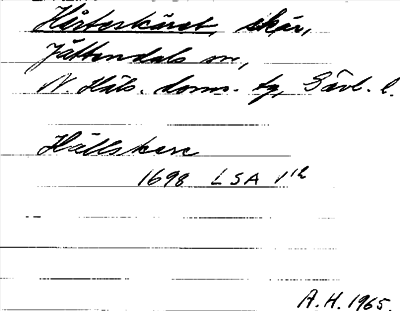 Hästeskäret, skär,
Jättendals sn,
N. Häls. doms. tg, Gävl. l.
Hällskere
1698 LSA V 12
A.H. 1965.